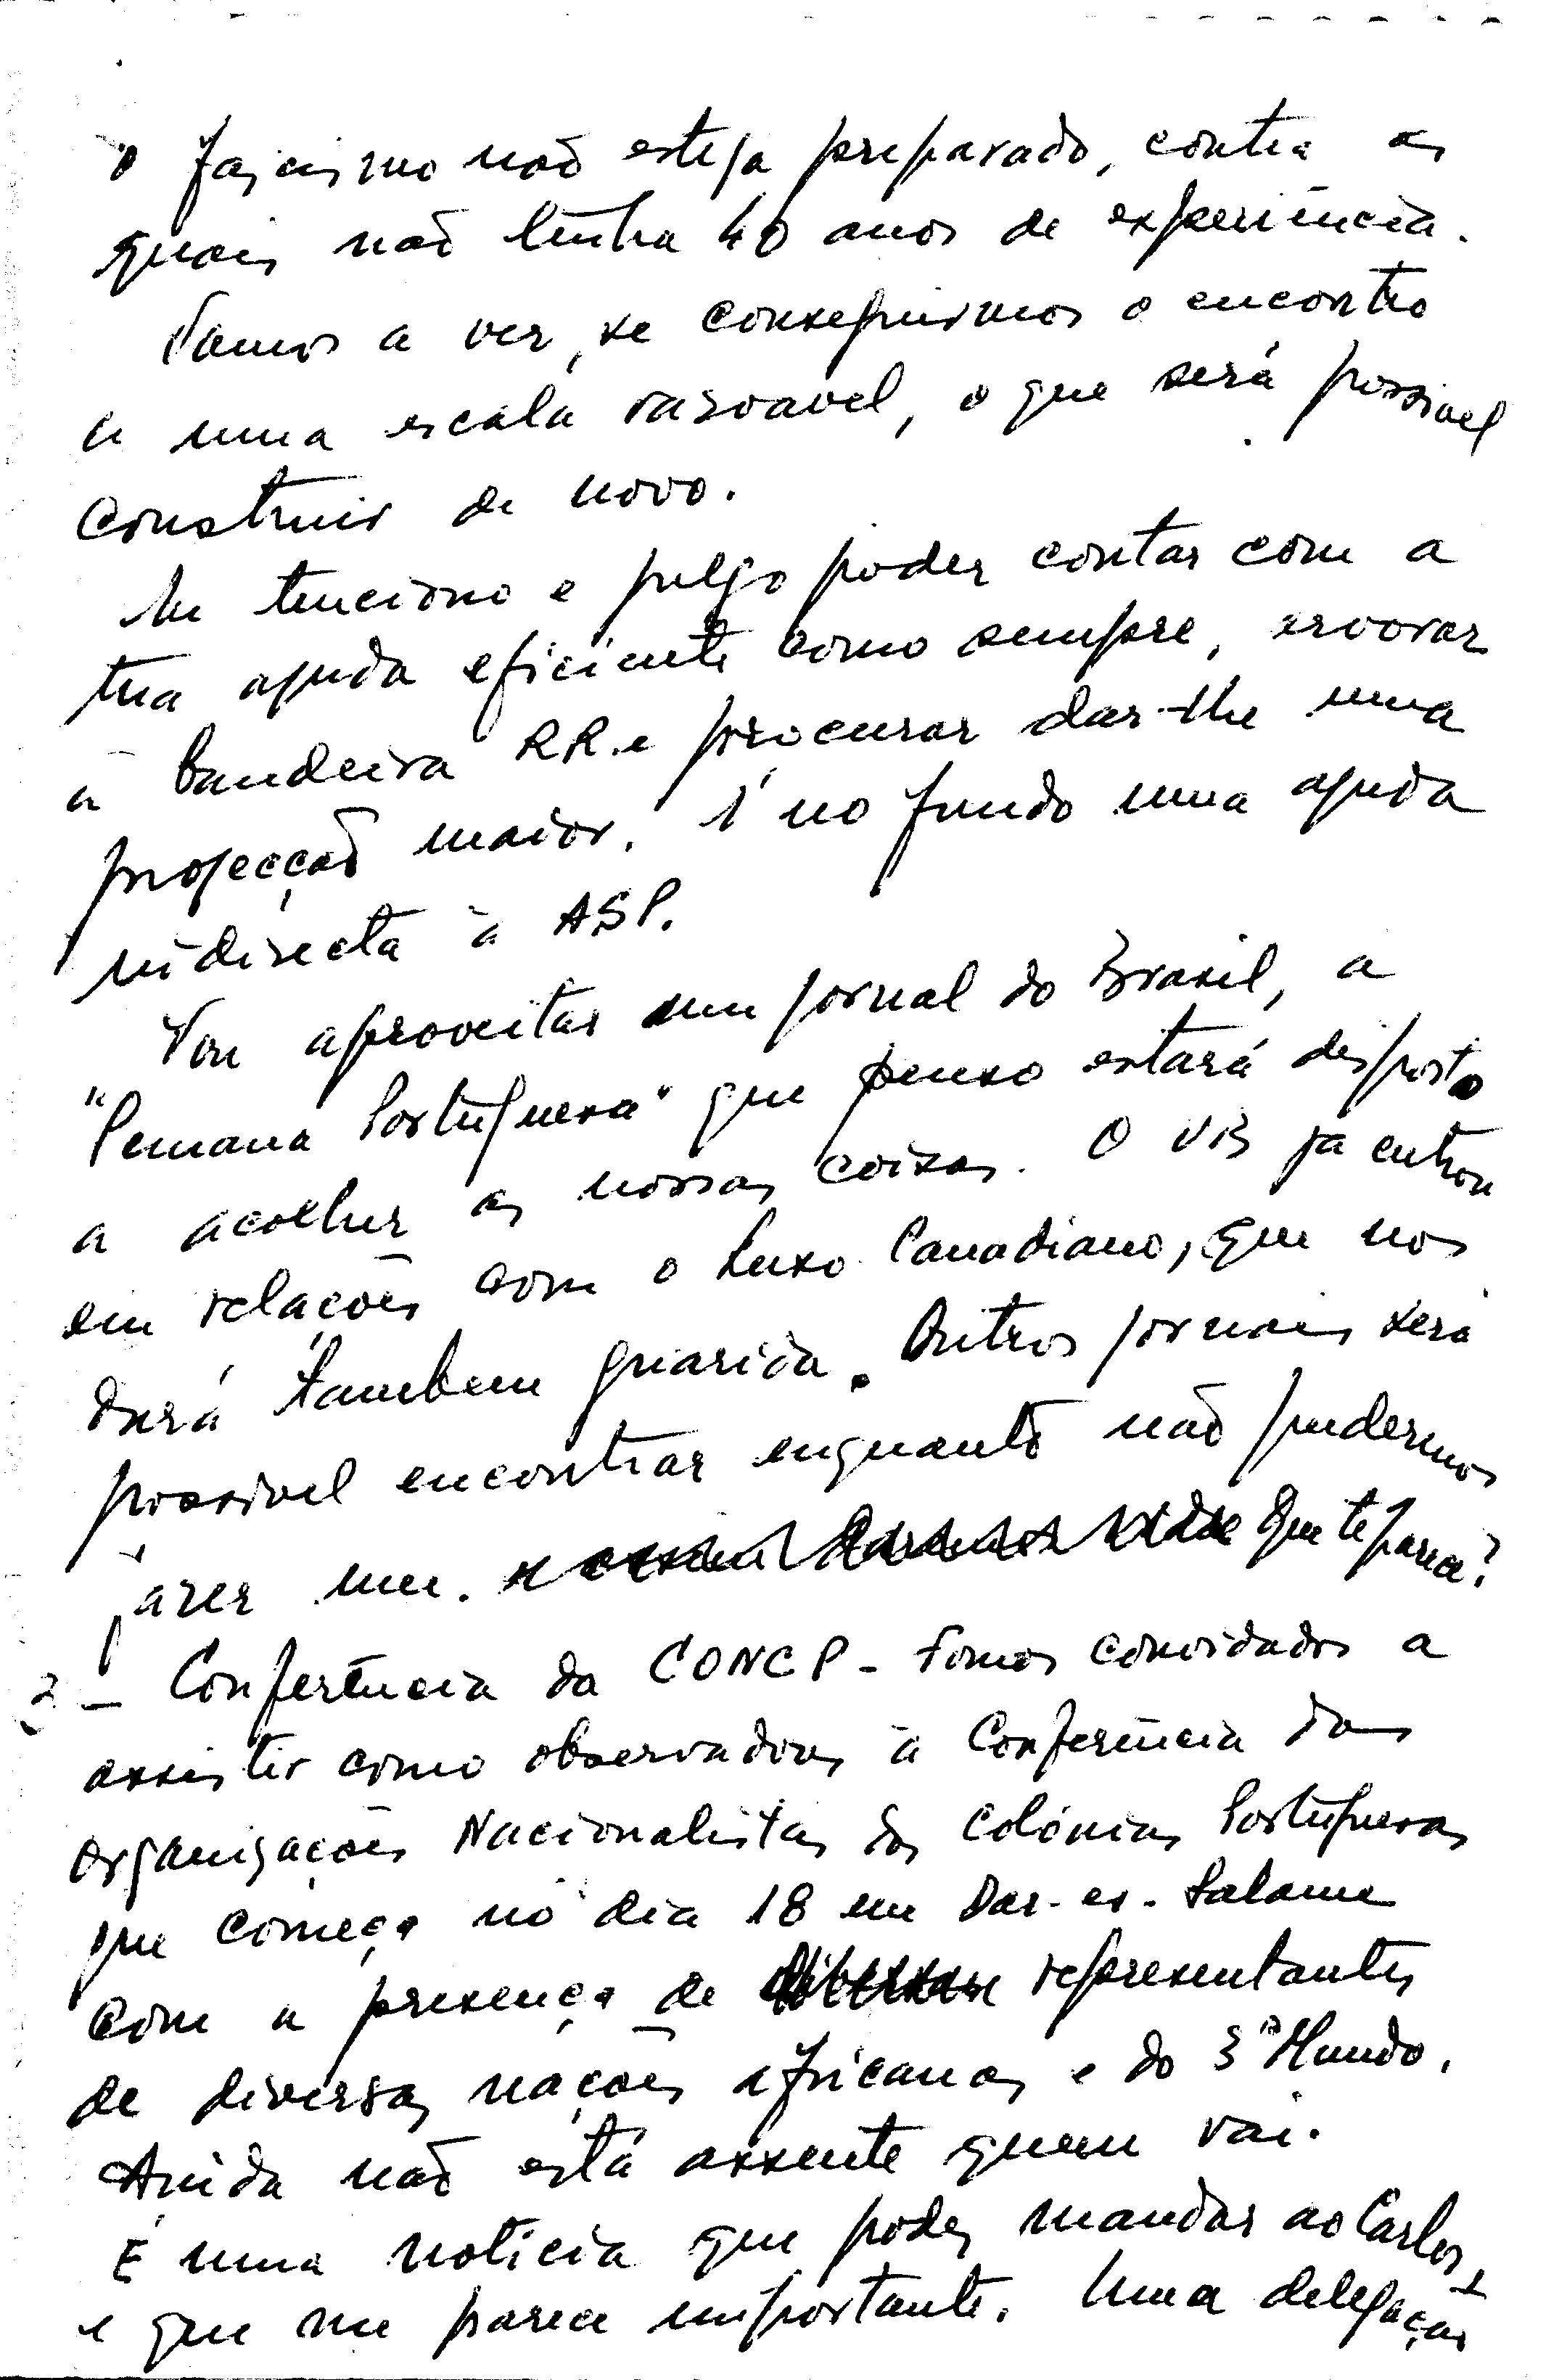 o fascismo não esteja preparado, contra as
quais não tenha 40 anos de experiência.
Vamos a ver, se conseguirmos o encontro
a uma escala razoavel, o que será possivel
construir de novo.
Eu tenciono e julgo poder contar com a
tua ajuda eficiente como sempre, arvorar
a bandeira RR e procurar dar-lhe uma
projecção maior. É no fundo uma ajuda
indirecta à ASP.
Vou aproveitar um jornal do Brasil, a
"Semana Portuguesa" que penso estará disposto
a acolher as nossas coisas. O VB já entrou
em relações com o Luso Canadiano, que nos
dará tambem guarida. Outros jornais será
possivel encontrar enquanto não pudermos
fazer um. Que te parece?
3 - Conferência da CONCP - Fomos convidados a
assistir como observadores à Conferência das
Organizações Nacionalistas das Colónias Portuguesas
que começa no dia 18 em Dar-es-Salame
com a presença de representantes
de diversas nações africanas e do 3º Mundo.
Ainda não está assente quem vai.
É uma noticia que podes mandar ao Carlos
e que me parece importante. Uma delegação